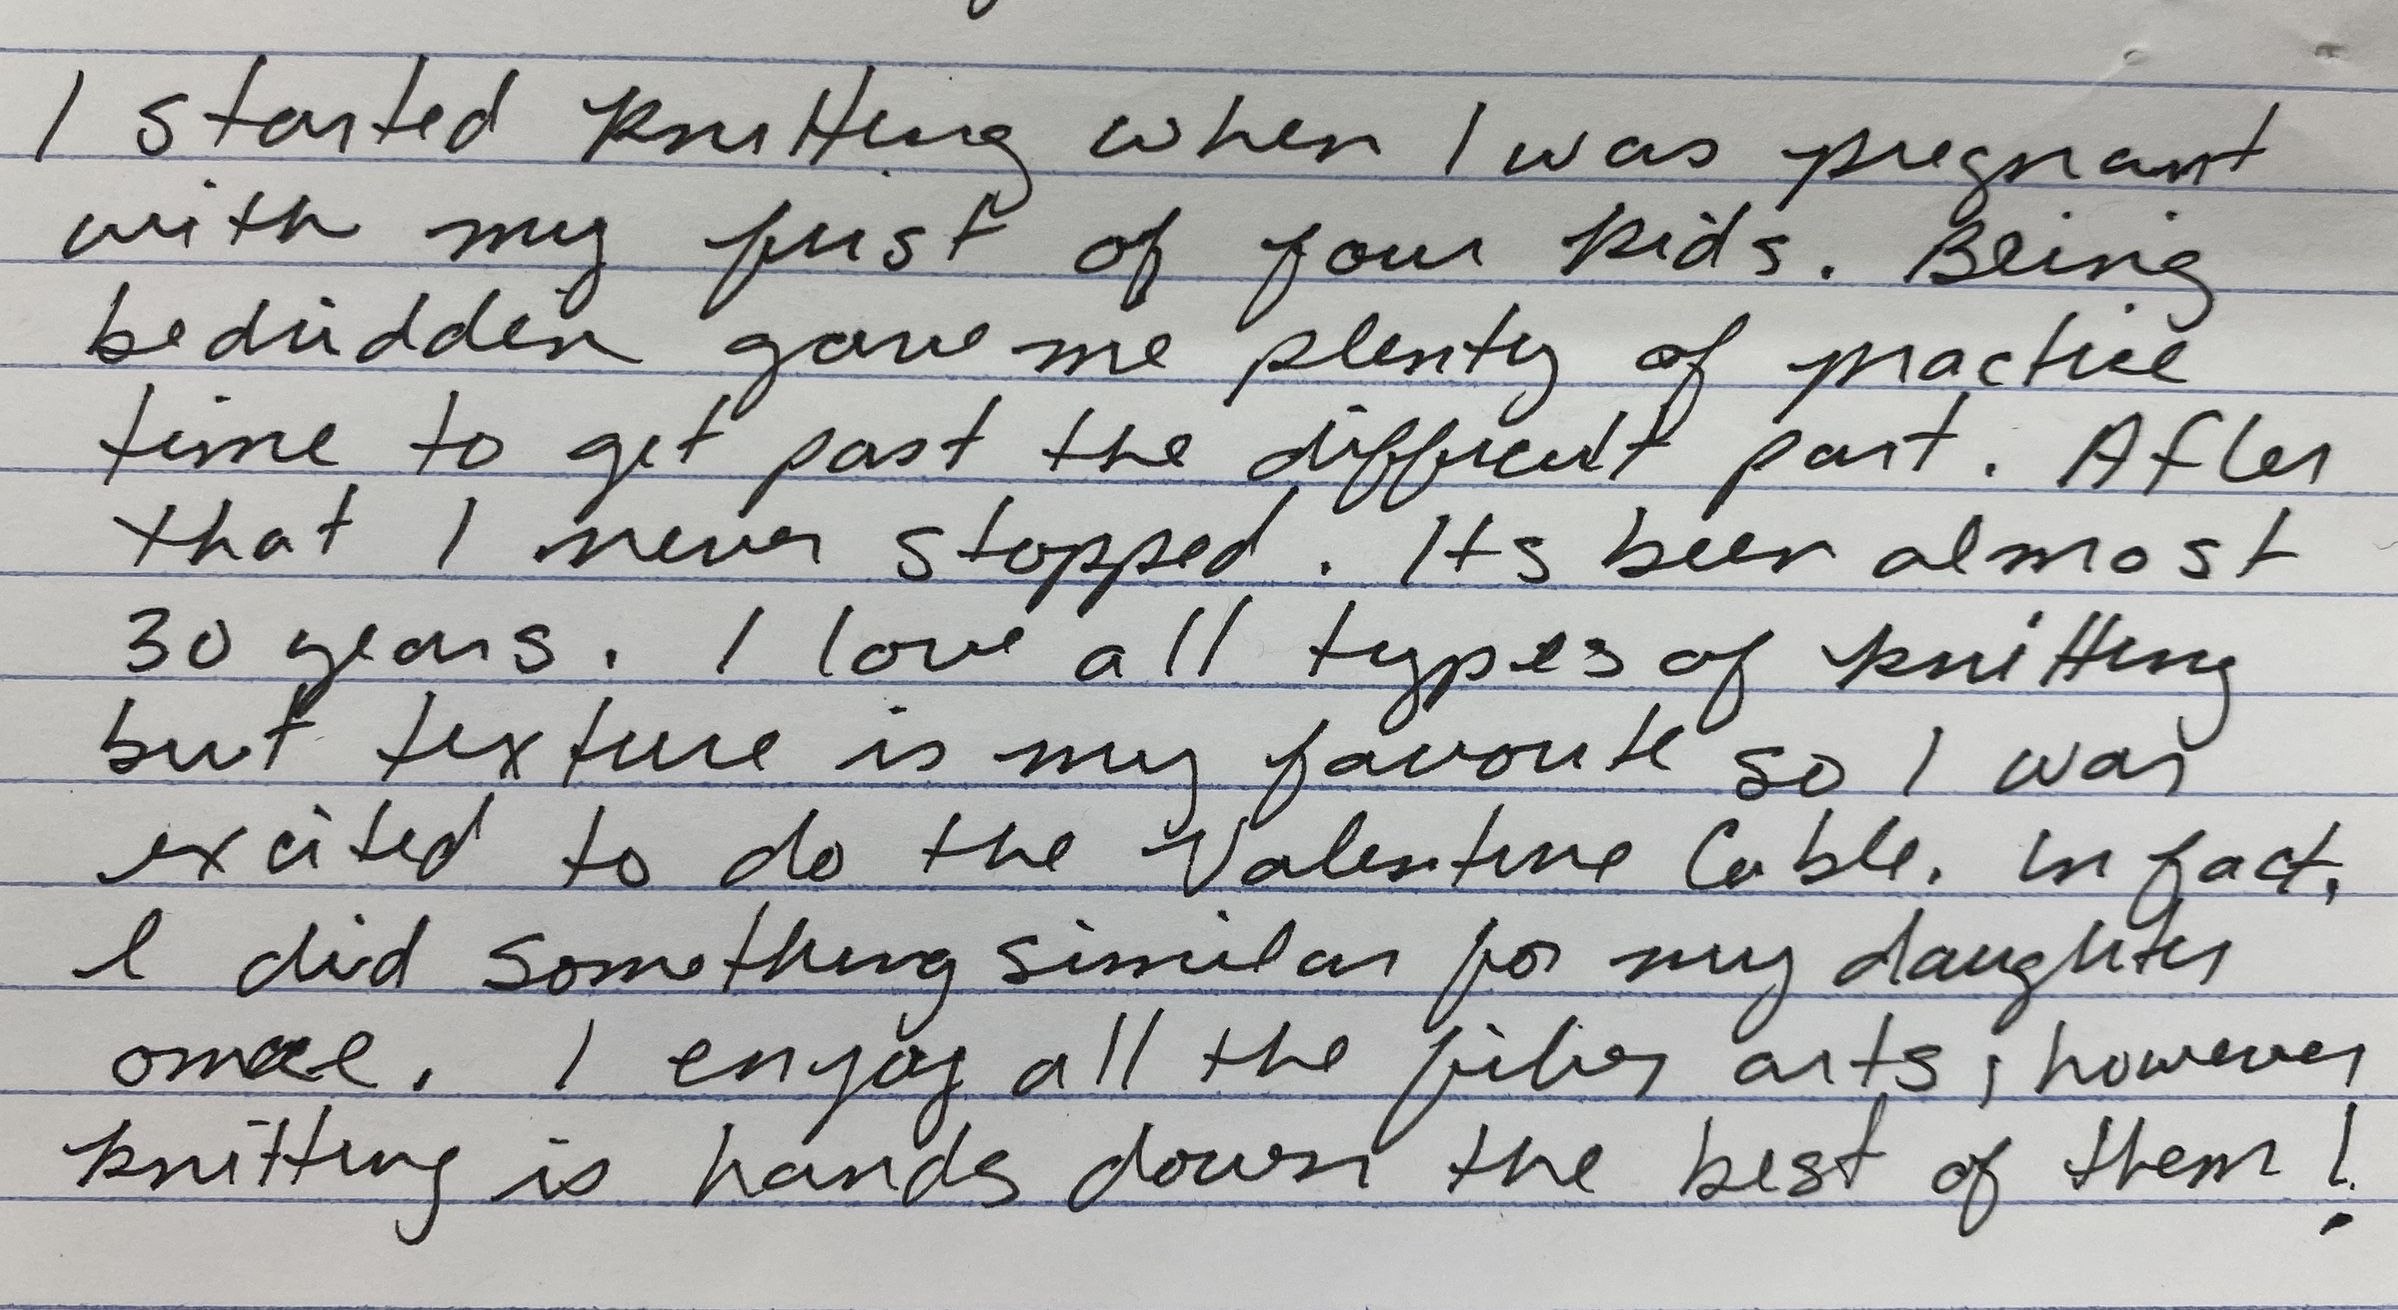 I started knitting when I was pregnant
with my first of four kids. Being
bedridden gave me plenty of practice
time to get past the difficult part. After
that I never stopped. Its been almost
30 years. I love all types of knitting
but texture is my favorite so I was
excited to do the Valentine Cable. In fact,
I did something similar for my daughter
once. I enjoy all the fiber arts, however
knitting is hands down the best of them!